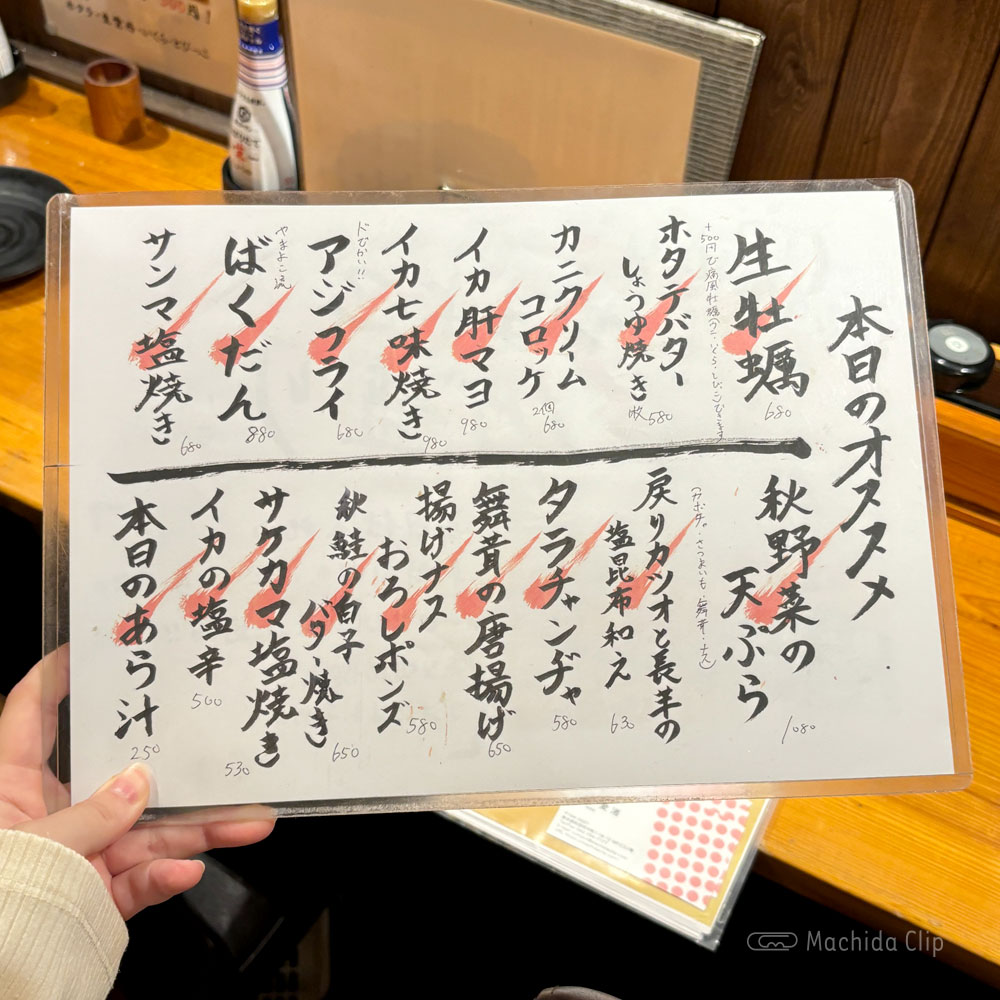 本日のオススメ
生牡蠣
680
+500円で痛風牡蠣(カニ・いくら・とびこ)できます
ホタテバター
しょうゆ焼き
1枚 580
カニクリーム
コロッケ
2個 680
イカ肝マヨ
980
イカ七味焼き
980
ドでかい!!
アジフライ
680
やまよこ流
ばくだん
880
サンマ塩焼き
680
秋野菜の
天ぷら
1080
(カボチャ・さつまいも・舞茸・ナス)
戻りカツオと長芋の
塩昆布和え
630
タラチャンヂャ
580
舞茸の唐揚げ
650
揚げナス
おろしポンズ
580
秋鮭の白子
バター焼き
650
サケカマ塩焼き
530
イカの塩辛
500
本日のあら汁
250
Machida Clip